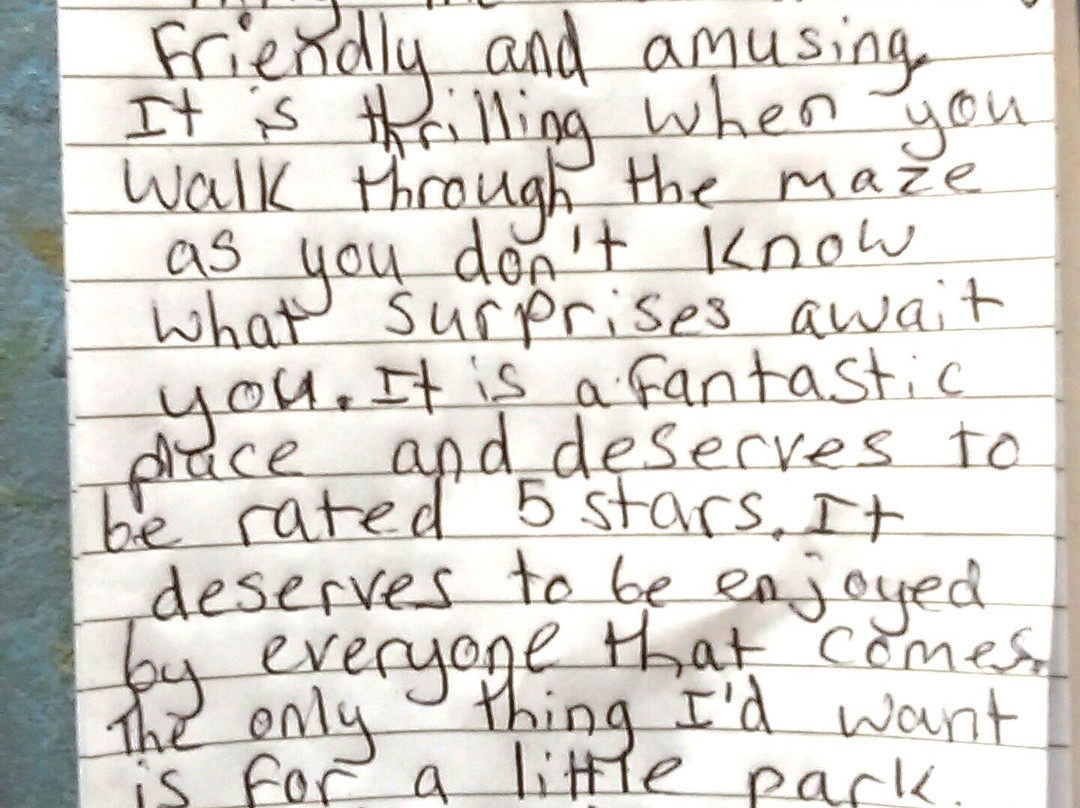 Friendly and amusing.
It is thrilling when you
walk through the maze
as you don't know
what surprises await
you. It is a fantastic
place and deserves to
be rated 5 stars. It
deserves to be enjoyed
by everyone that comes.
The only thing I'd want
is for a little park.